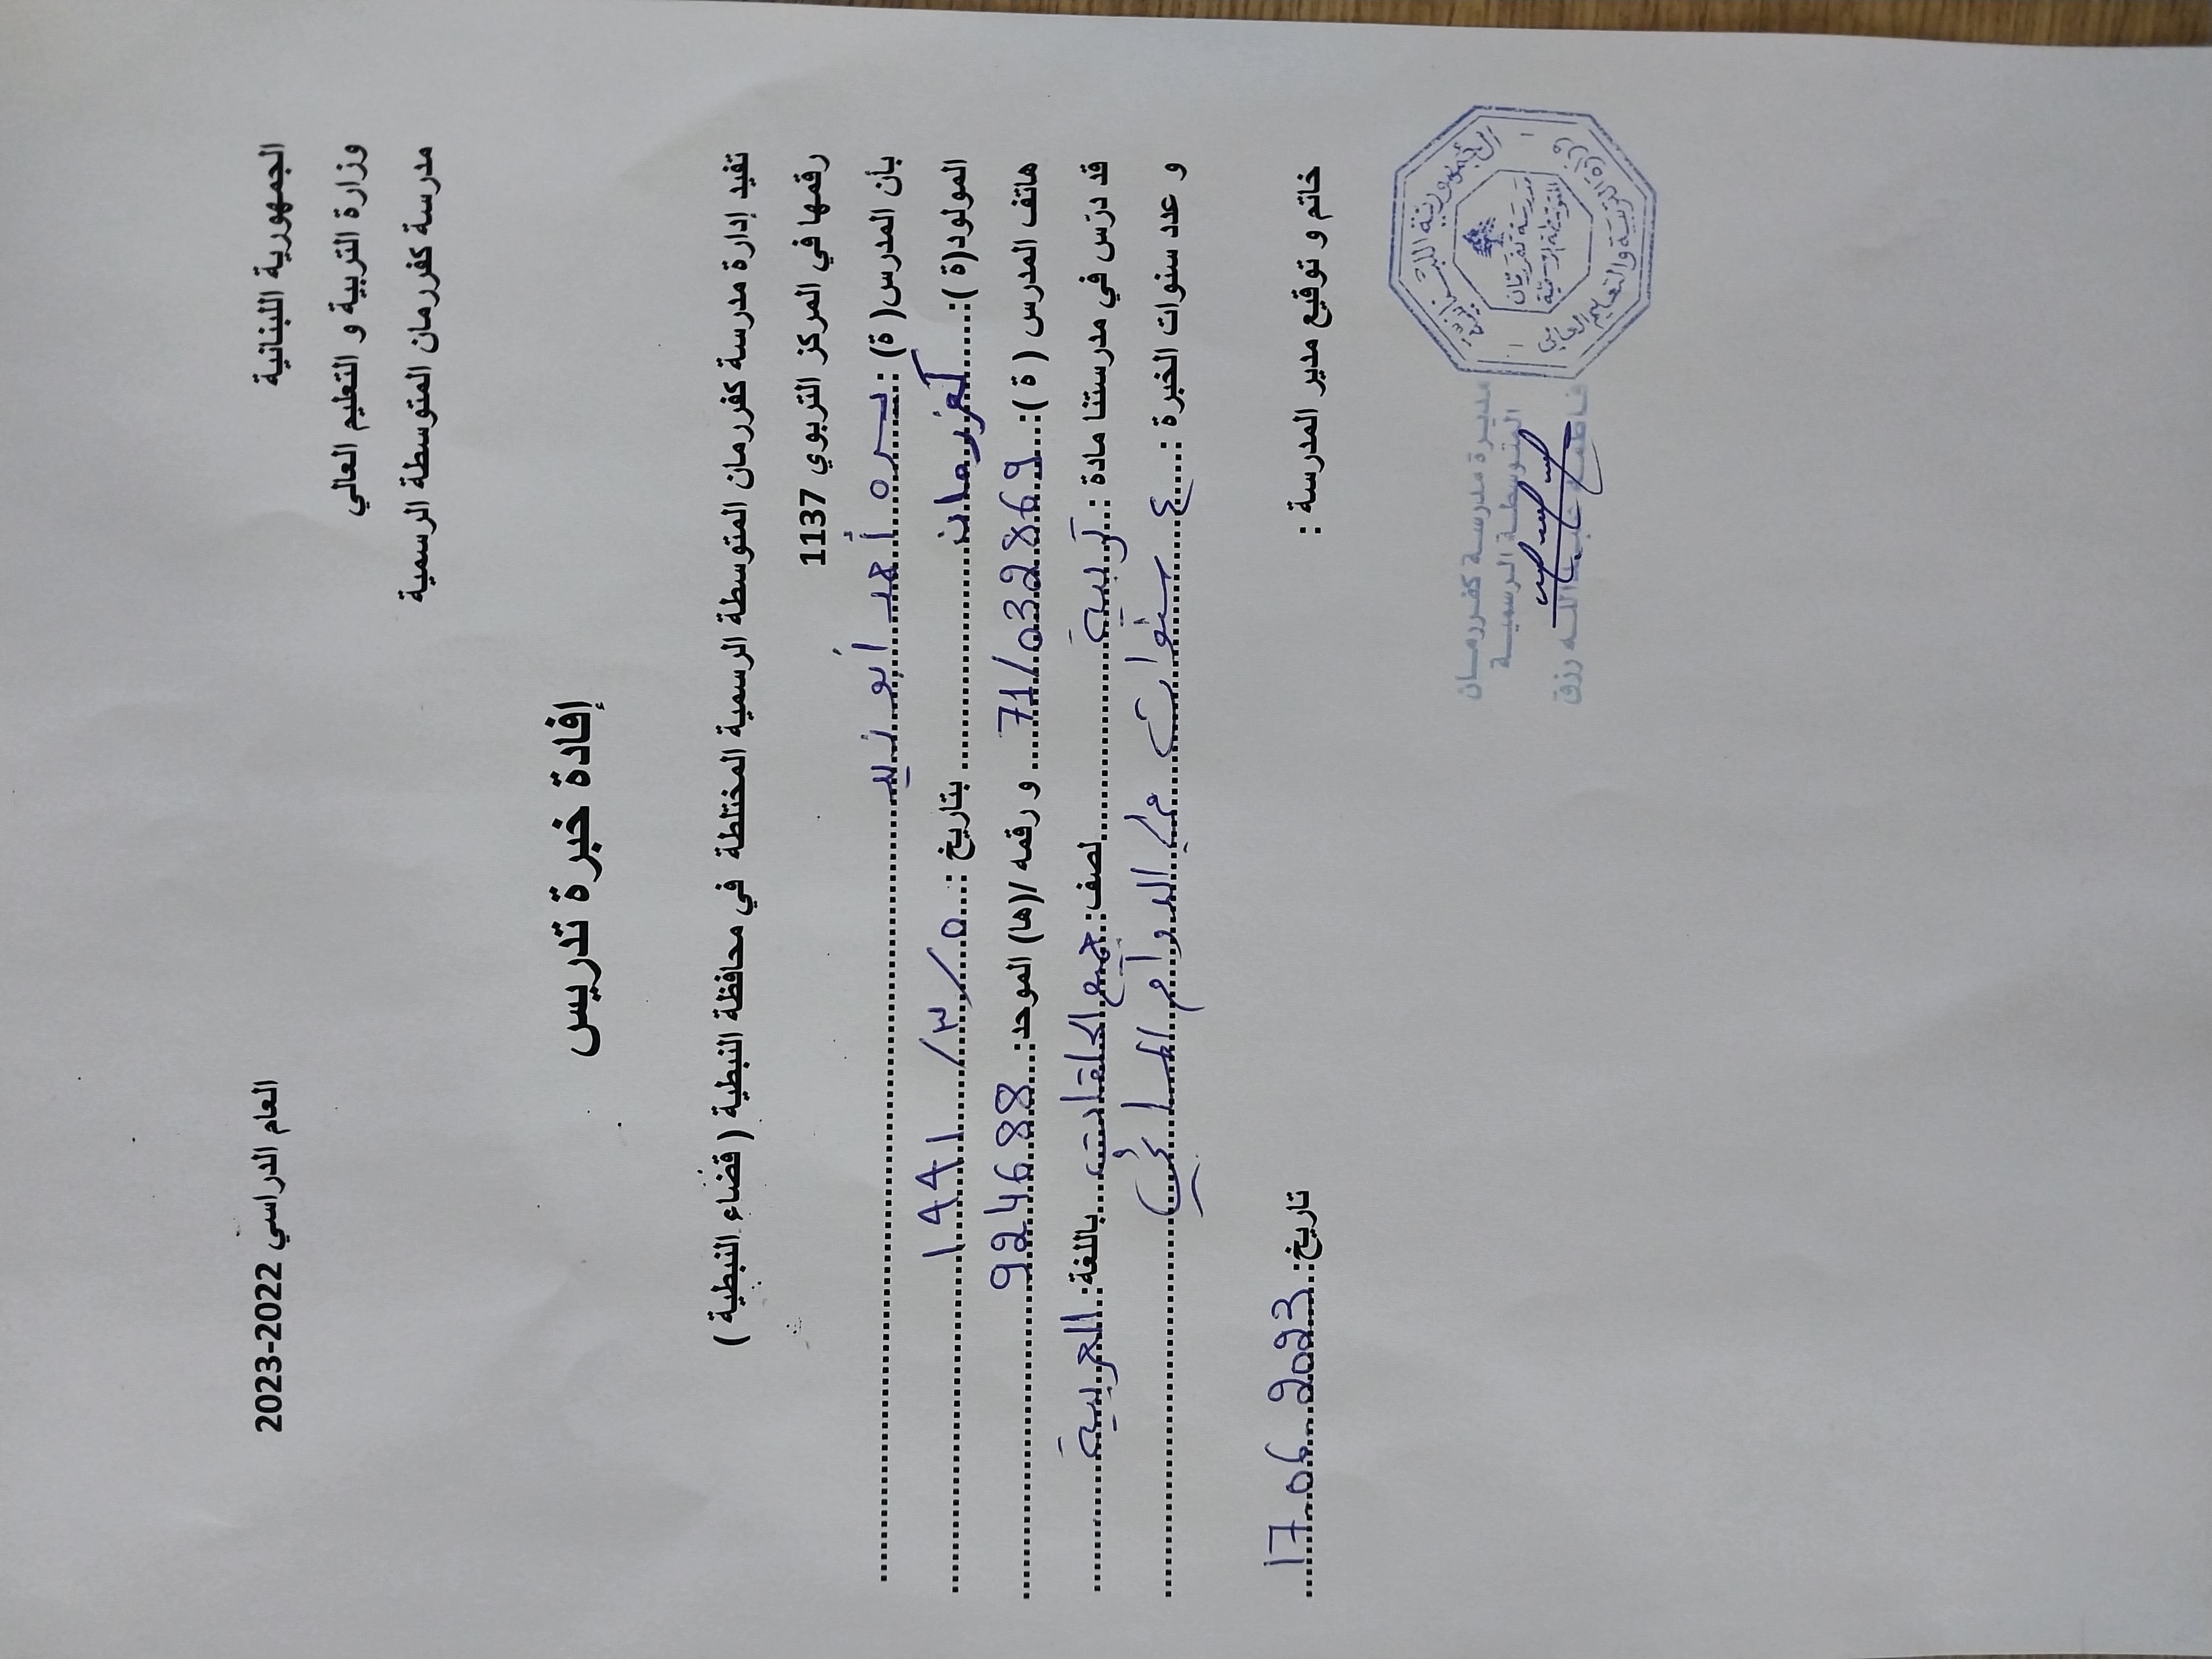 الجمهورية اللبنانية
وزارة التربية و التعليم العالي
مدرسة كفررمان المتوسطة الرسمية
العام الدراسي 2022-2023
إفادة خبرة تدريس
تفيد إدارة مدرسة كفررمان المتوسطة الرسمية المختلطة في محافظة النبطية ( قضاء النبطية )
رقمها في المركز التربوي 1137
بأن المدرس( ة) : أحمد أبو زيد
المولود(ة ): كفررمان بتاريخ : ٥ / ٣ / ١٩٩١
هاتف المدرس ( ة ): 71/032869 و رقمه /(ها) الموحد: 924688
قد درّس في مدرستنا مادة : تربية لصف: جميع الحلقات باللغة: العربية
و عدد سنوات الخبرة : ٤ سنوات في الدوام المسائي
خاتم و توقيع مدير المدرسة :
تاريخ: 17-06-2023
الجمهورية اللبنانية
وزارة التربية والتعليم العالي
مدرسة كفررمان
المتوسطة الرسمية
مديرة مدرسة كفررمان
المتوسطة الرسمية
فاطمة الله رزق